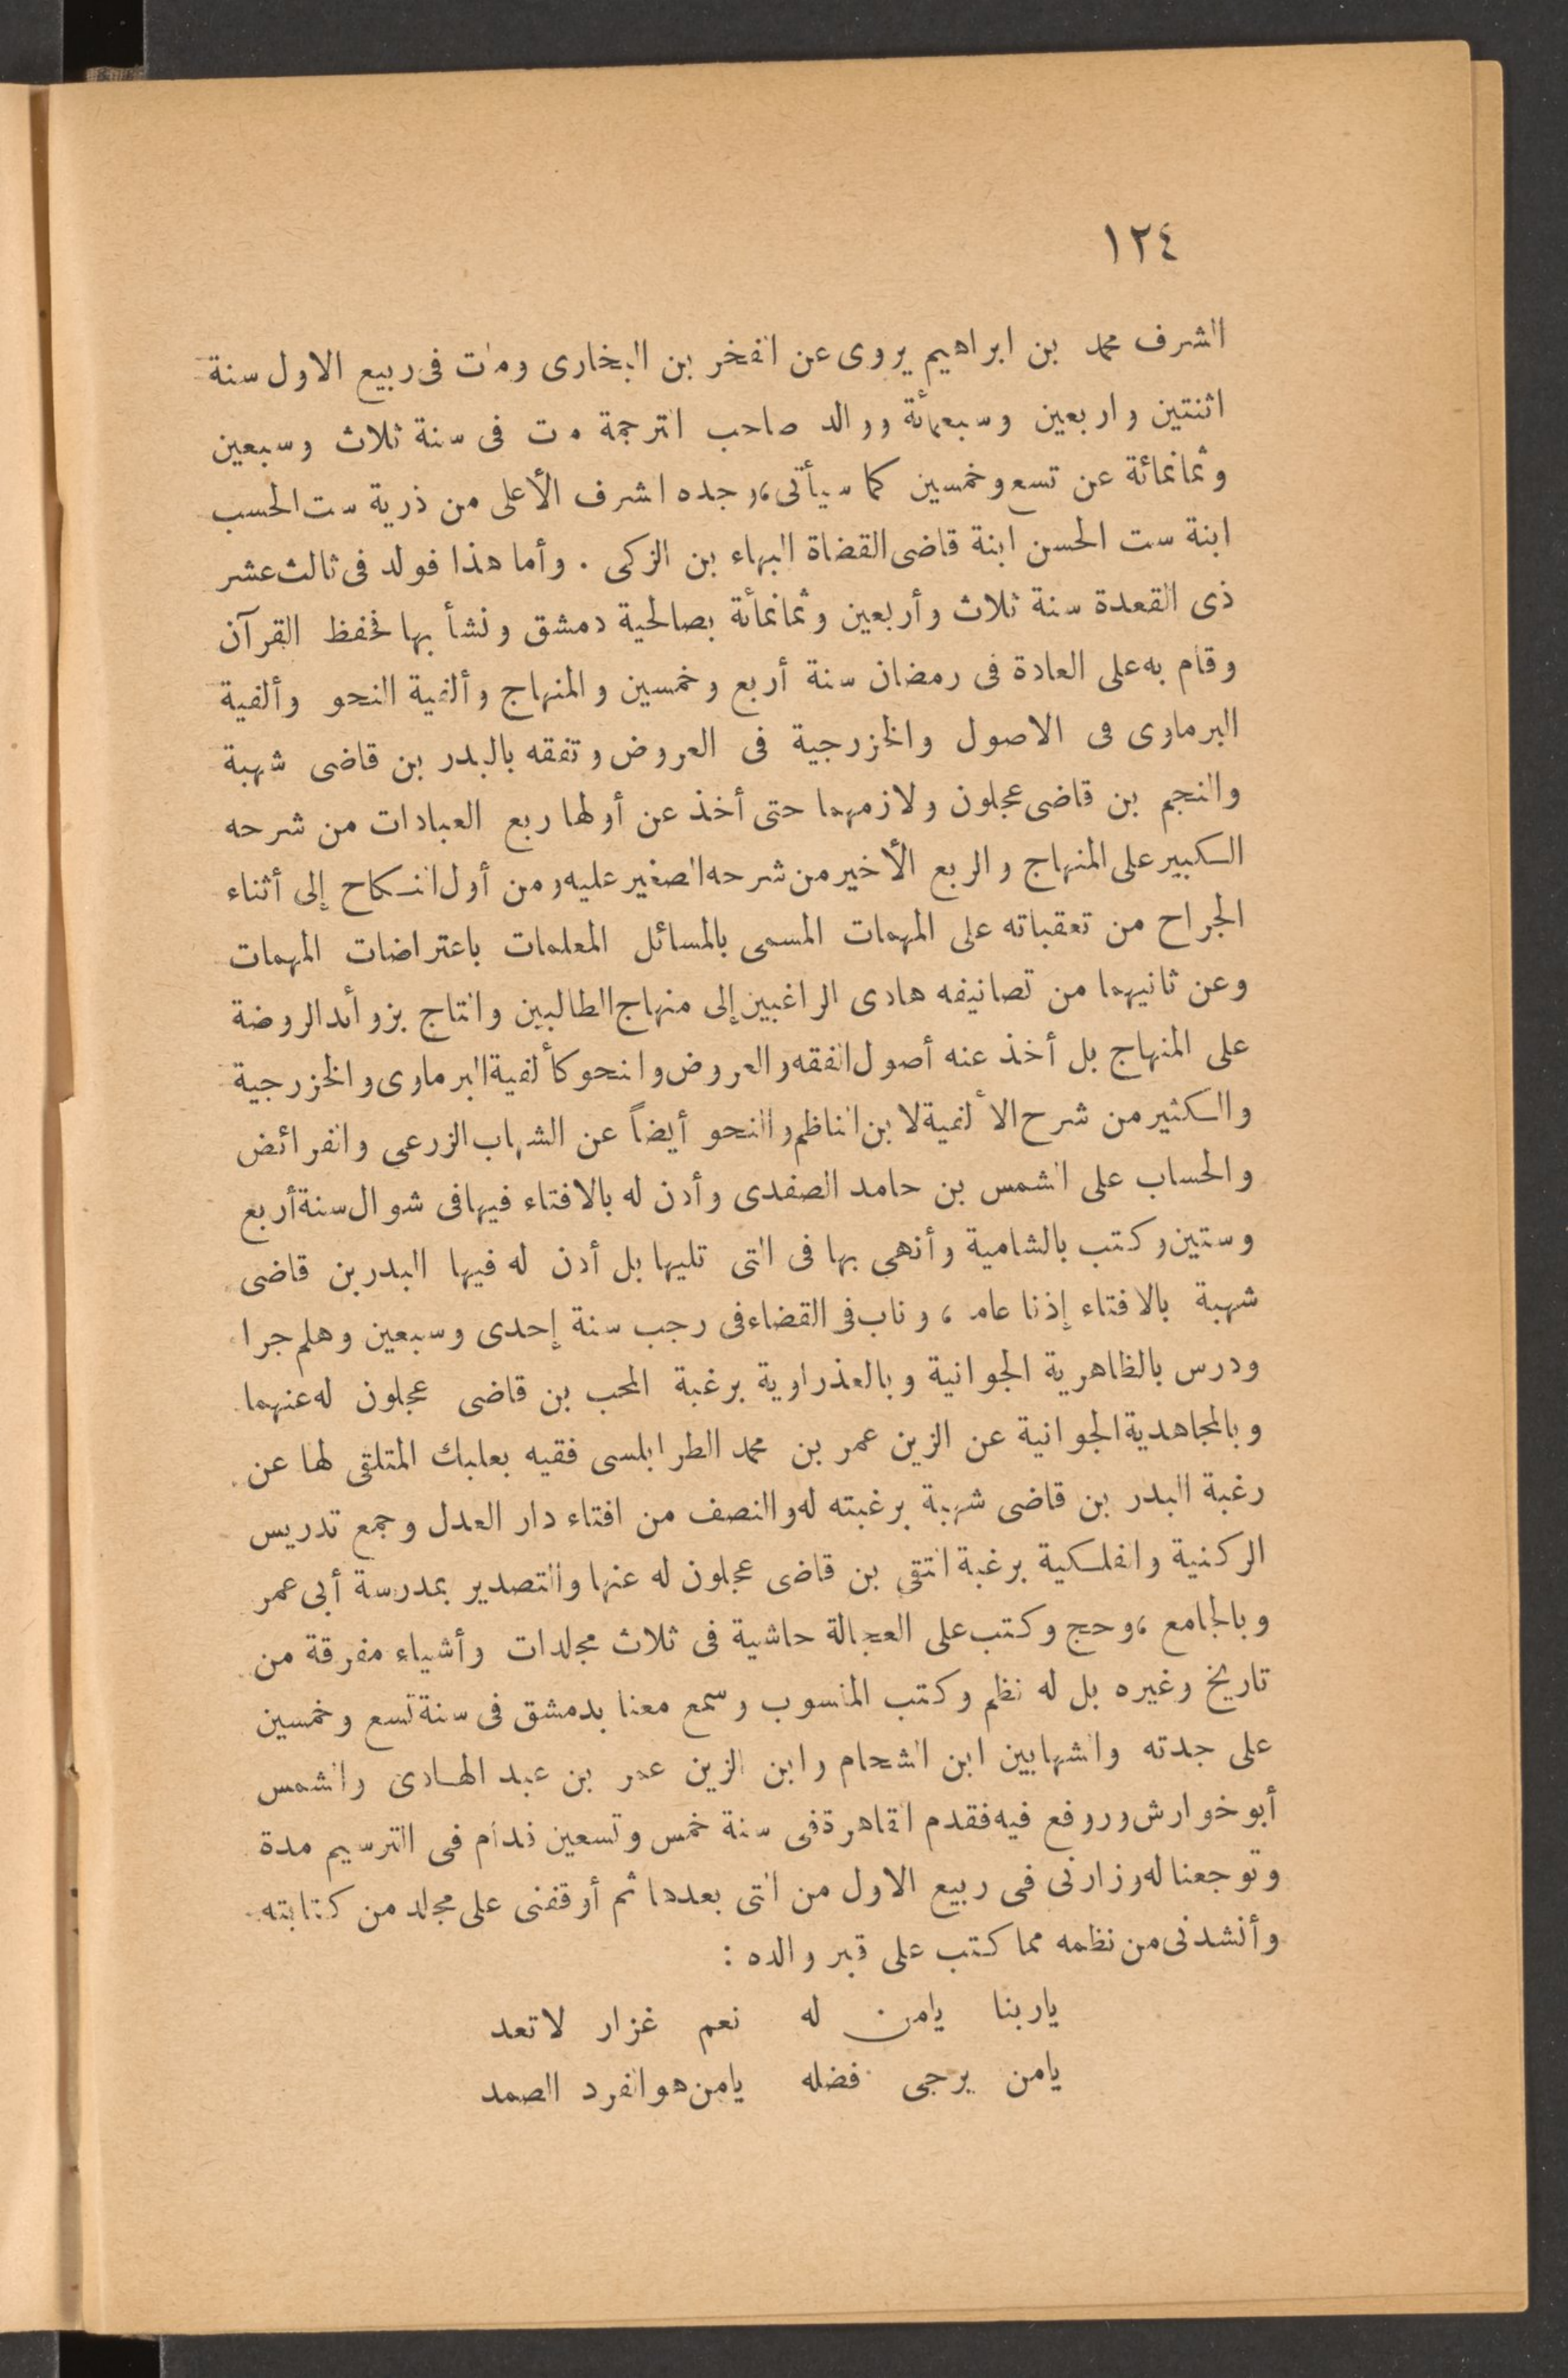 ١٢٤
الشرف محمد بن ابراهيم يروى عن الفخر بن البخارى ومات فى ربيع الاول سنة
اثنتين واربعين وسبعمائة ووالد صاحب الترجمة مات فى سنة ثلاث وسبعين
وثمانمائة عن تسع وخمسين كما سيأتى، وجده اشرف الأعلى من ذرية ست الحسب
ابنة ست الحسن ابنة قاضى القضاة البهاء بن الزكى . وأما هذا فولد فى ثالث عشر
ذى القعدة سنة ثلاث وأربعين وثمانمائة بصالحية دمشق ونشأ بها فحفظ القرآن
وقام به على العادة فى رمضان سنة أربع وخمسين والمنهاج وألفية النحو وألفية
البرماوى فى الاصول والخزرجية فى العروض وتفقه بالبدر بن قاضى شهبة
والنجم بن قاضى عجلون ولازمهما حتى أخذ عن أولها ربع العبادات من شرحه
الكبير على المنهاج والربع الأخير من شرحه الصغير عليه ومن أول النكاح إلى أثناء
الجراح من تعقباته على المهمات المسمى بالمسائل المعلمات باعتراضات المهمات
وعن ثانيهما من تصانيفه هادى الراغبين إلى منهاج الطالبين والتاج بزوائد الروضة
على المنهاج بل أخذ عنه أصول الفقه والعروض والنحو كألفية البرماوى والخزرجية
والكثير من شرح الألفية لابن الناظم والنحو أيضاً عن الشهاب الزرعى والفرائض
والحساب على الشمس بن حامد الصفدى وأذن له بالافتاء فيها فى شوال سنة أربع
وستين وكتب بالشامية وأنهى بها فى التى تليها بل أذن له فيها البدر بن قاضى
شهبة بالافتاء إذنا عاما ، وناب فى القضاء فى رجب سنة إحدى وسبعين وهلم جرا
ودرس بالظاهرية الجوانية وبالعذراوية برغبة المحب بن قاضى عجلون له عنهما
وبالمجاهدية الجوانية عن الزين عمر بن محمد الطرابلسى فقيه بعلبك المتلقى لها عن
رغبة البدر بن قاضى شهبة برغبته له والنصف من افتاء دار العدل وجمع تدريس
الركنية والفلكية برغبة التقى بن قاضى عجلون له عنها والتصدير بمدرسة أبى عمر
وبالجامع ، وحج وكتب على العجالة حاشية فى ثلاث مجلدات وأشياء مفرقة من
تاريخ وغيره بل له نظم وكتب المنسوب وسمع معنا بدمشق فى سنة تسع وخمسين
على جدته والشهابين ابن الشحام وابن الزين عمر بن عبد الهادى والشمس
أبو خوارش وروفع فيه فقدم القاهرة فى سنة خمس وتسعين فدام فى الترسيم مدة
وتوجعنا له وزارنى فى ربيع الاول من التى بعدها ثم أوقفنى على مجلد من كتابته
وأنشدنى من نظمه مما كتب على قبر والده :
ياربنا يامن له نعم غزار لا تعد
يامن يرجى فضله يامن هو الفرد الصمد